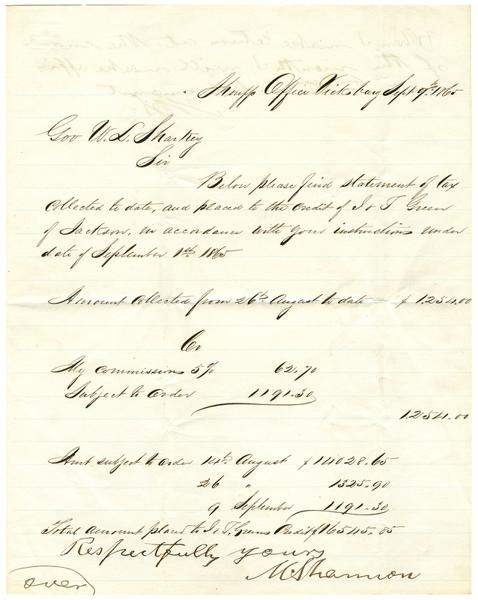 Shffs Office Vicksburg Sept 9th 1865
Gov W. L. Sharkey
Sir
Below please find statement of tax
collected to date, and placed to the credit of J & T Green
of Jackson, in accordance with your instructions under
date of September 1st 1865
Amount collected from 26th August to date — $ 1254.00
Cr
My Commissions 5% 62.70
Subject to order 1191.30
1254.00
Amt subject to order 14th August $14028.65
26 " 1325.90
9 September 1191.30
Total amount place to J & T Greens Credit $16545.85
Respectfully yours
M Shannon
over
When I make return at the end
of the month I will make